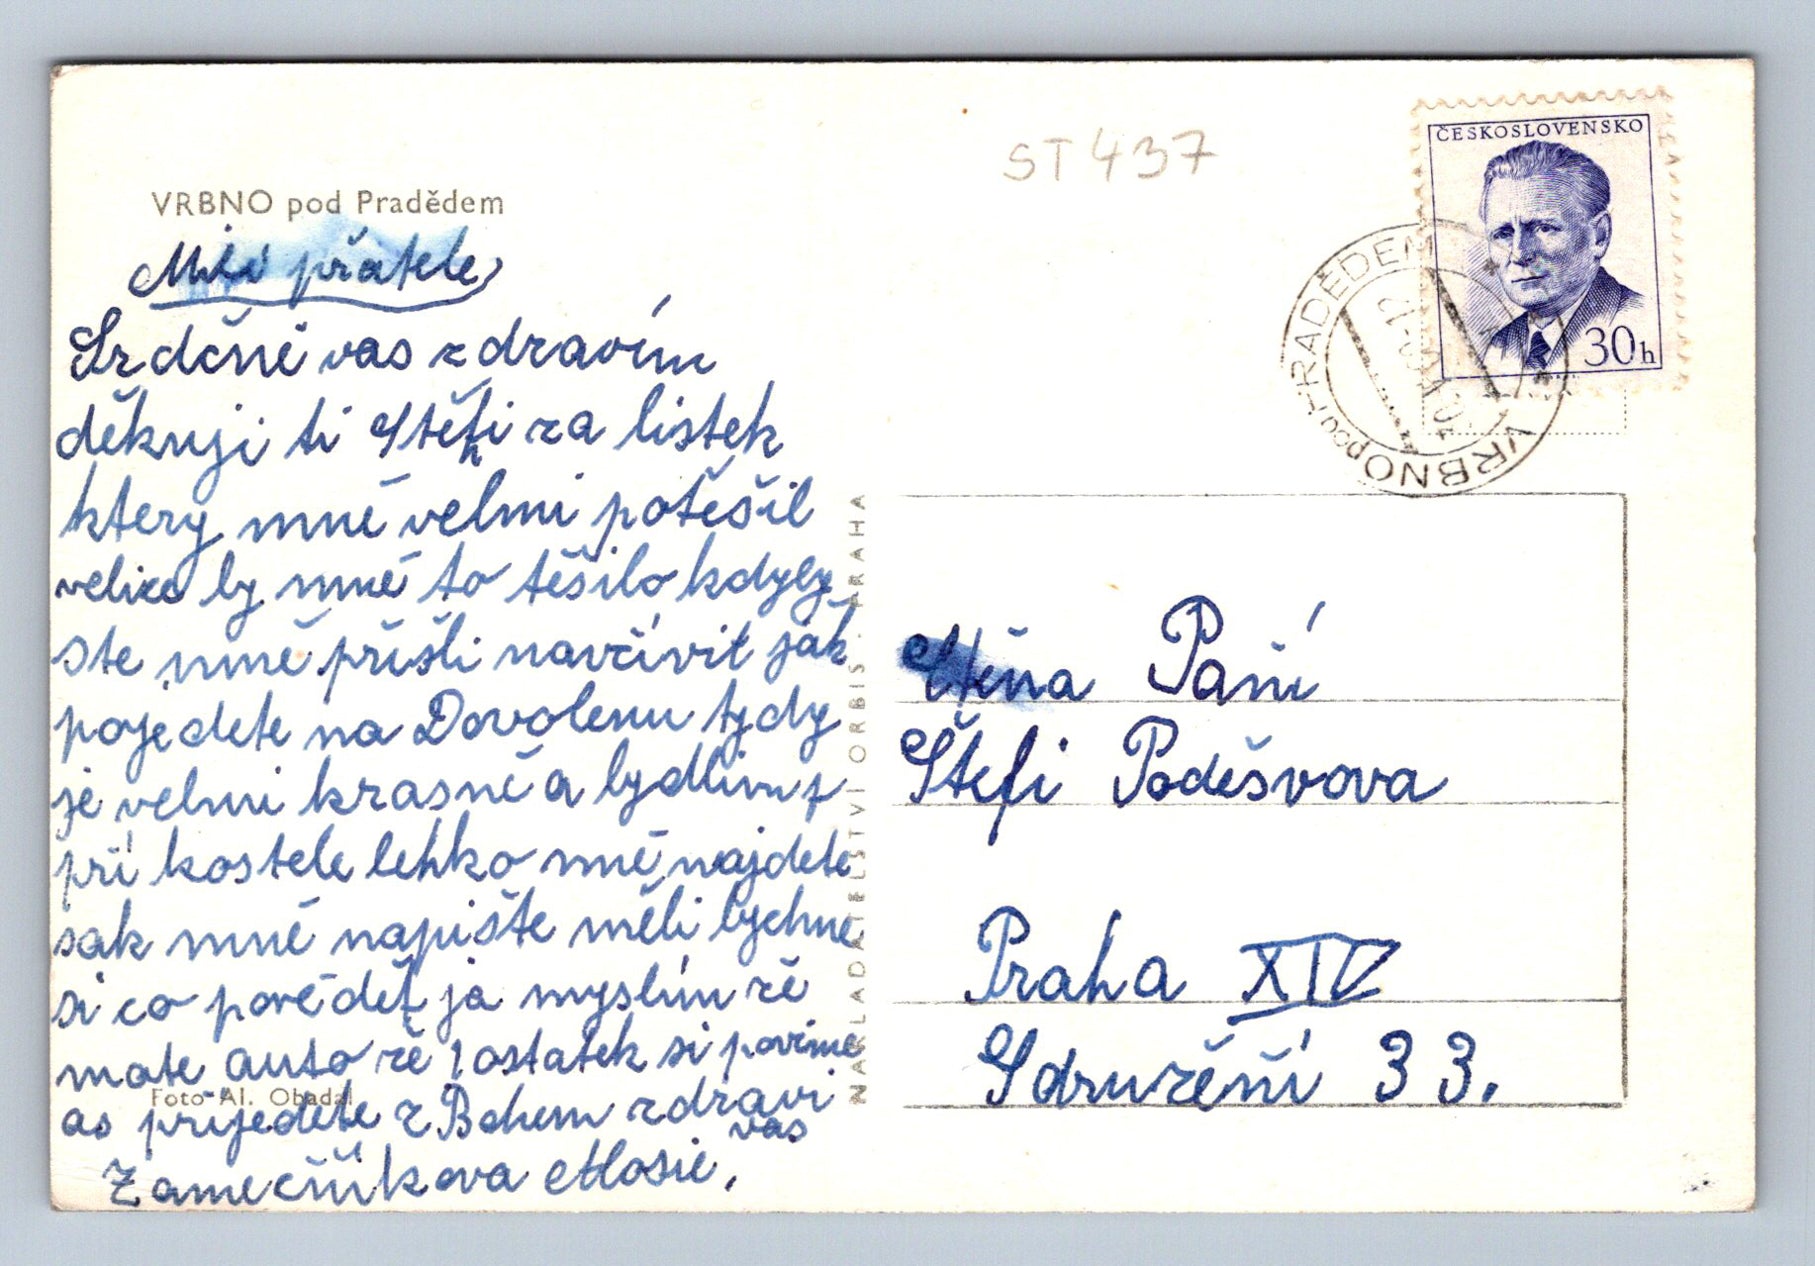 VRBNO pod Pradědem
Milí přátele,
Srdčně vas zdravím
děkuji ti Štěfi za listek
ktery mně velmi potěšil
velice by mně to těšilo kdyby
ste mně přišli navčívit jak
pojedete na Dovolenu tydy
je velmi krasně a bydlim
při kostele lehko mně najdete
sak mně napište měli bychme
si co povědět ja myslím žě
mate auto žě ostatek si povime
as přijedete z Bohem zdravi
vas
Zamečňíkova
Foto Al. Obadal
NAKLADATELSTVÍ ORBIS - PRAHA
ST 437
ČESKOSLOVENSKO
30h
VRBNO pod PRADĚDEM
Paňí
Štefi Poděšvova
Praha XIV
Sdružěňí 33.